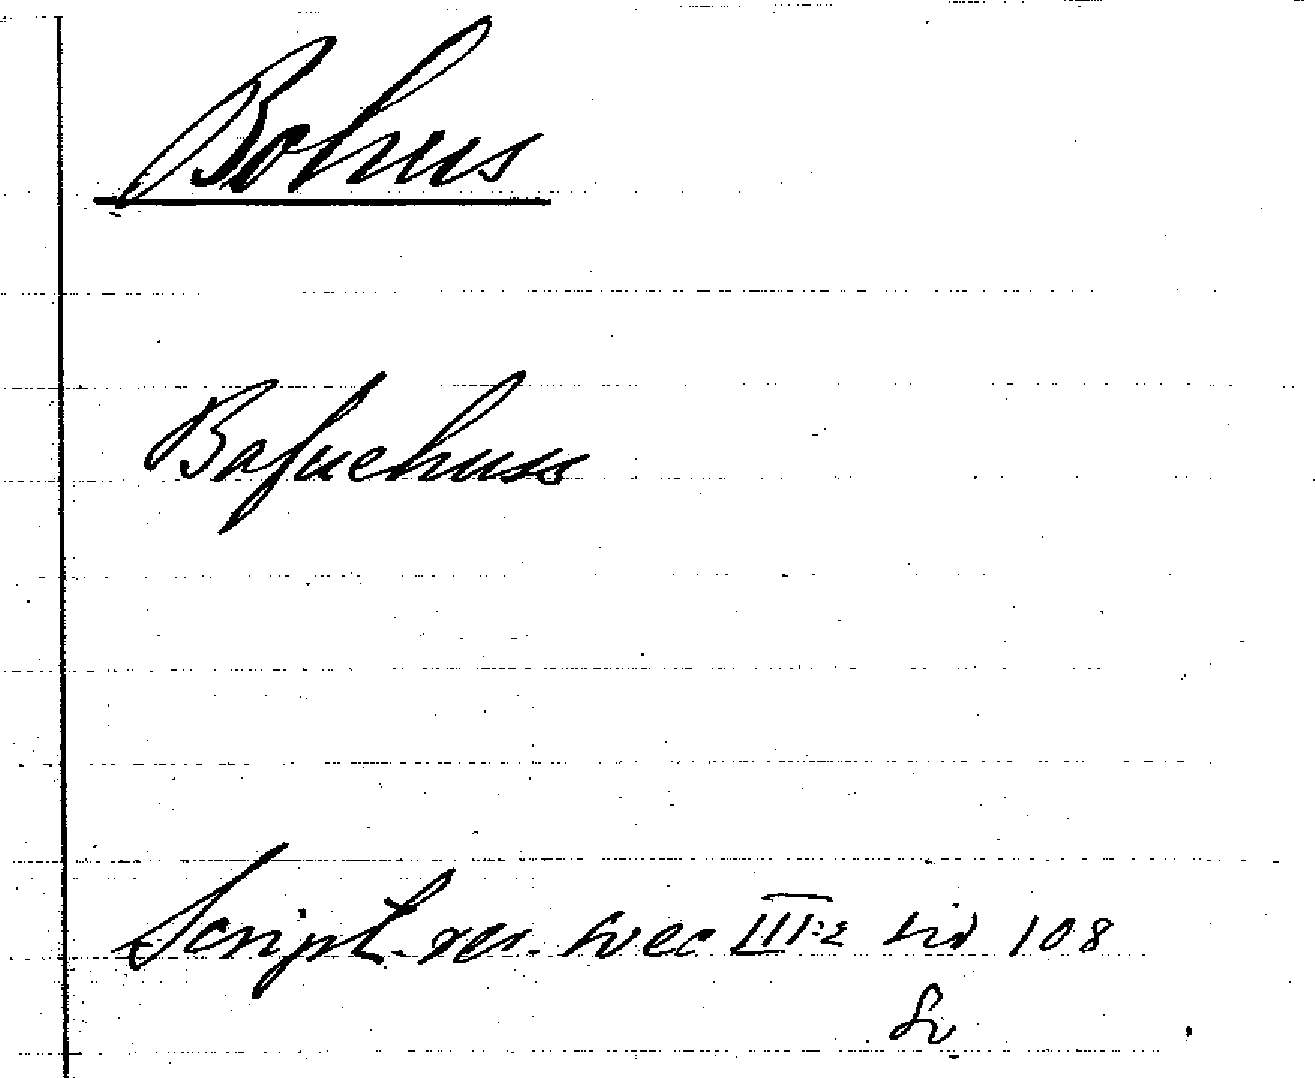 Bohus
Bafuehuss
Script. rer. svec III:2 sid 108